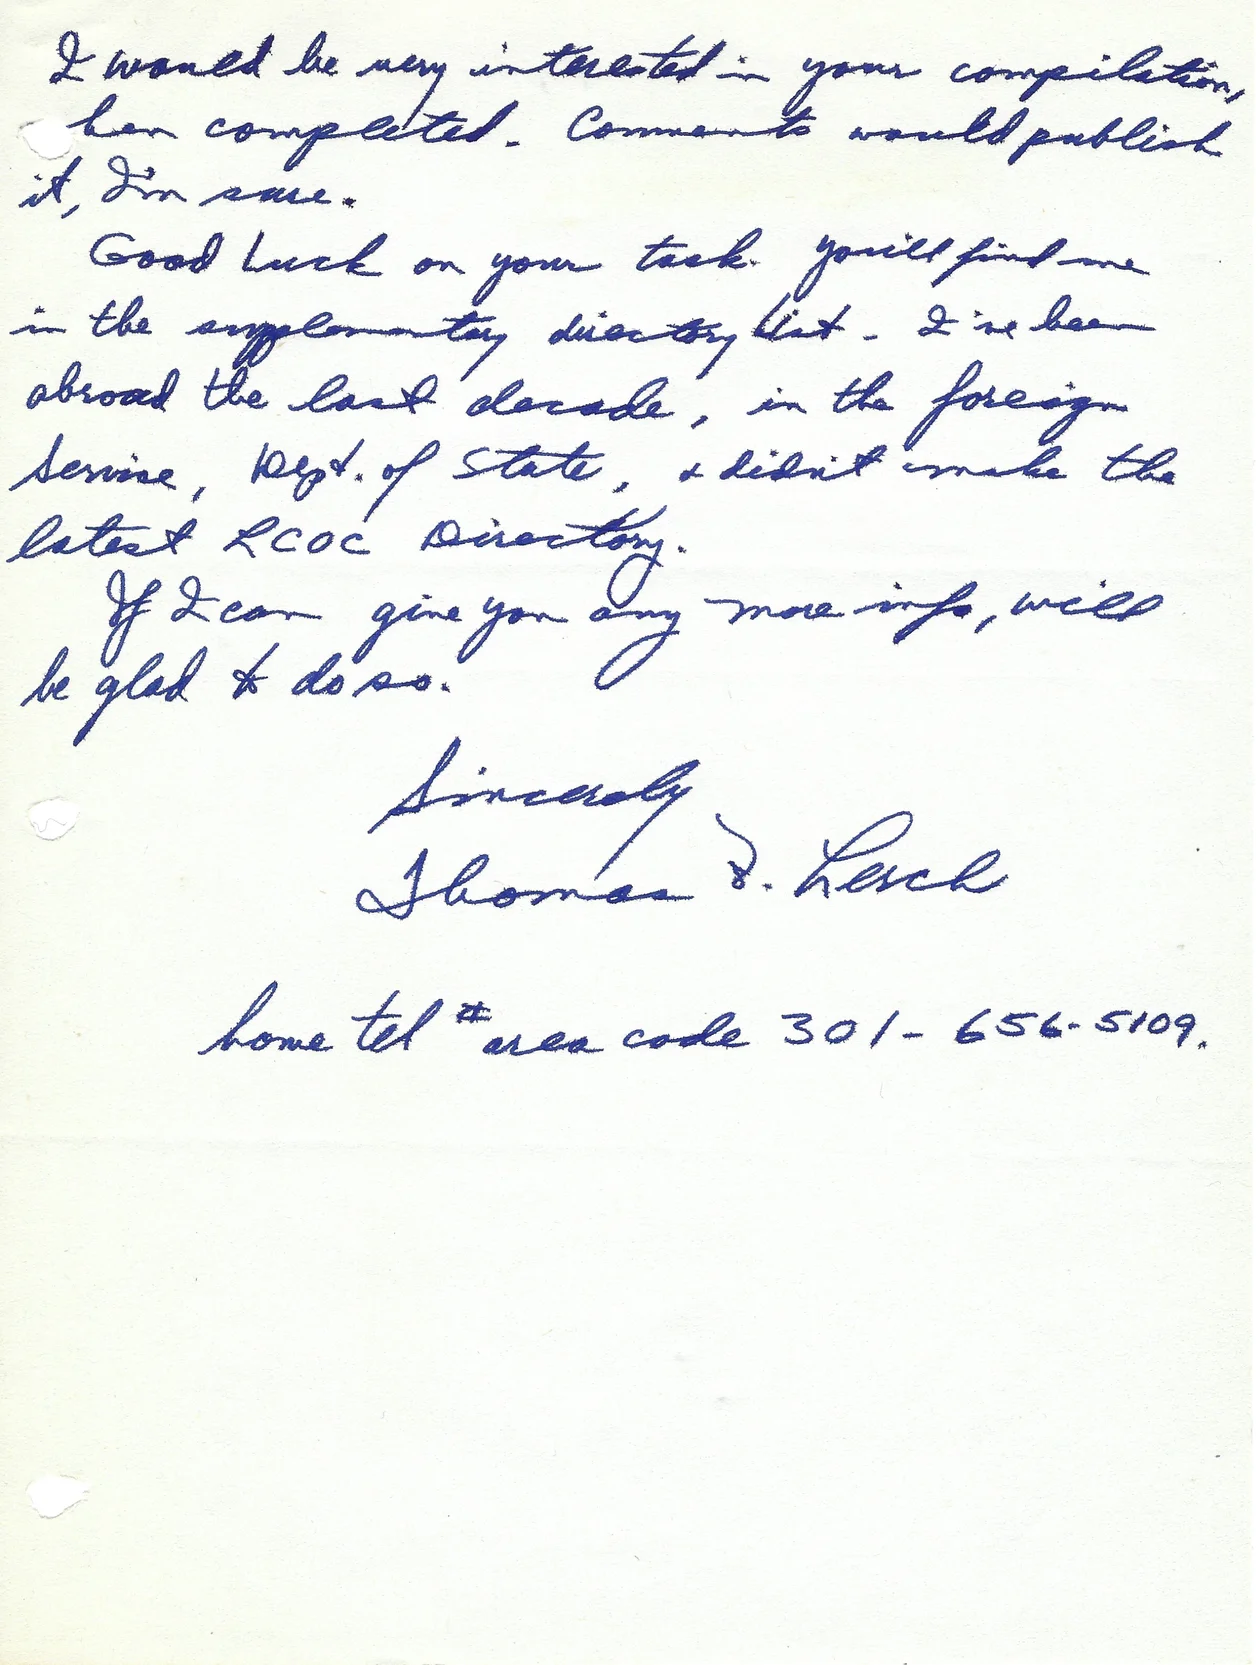 I would be very interested in your compilation,
hen completed. Comments would publish
it, I'm sure.
Good Luck on your task. You'll find me
in the supplementary directory list. I've been
abroad the last decade, in the foreign
Service, Dept. of State, & didn't make the
latest LCOC Directory.
If I can give you any more info, will
be glad to do so.
Sincerely
Thomas J. Lerch
home tel # area code 301-656-5109.